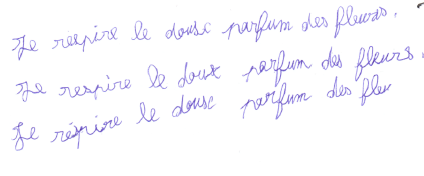 Je respire le doux parfum des fleurs.
Je respire le doux parfum des fleurs.
Je réspire le doux parfum des fleu